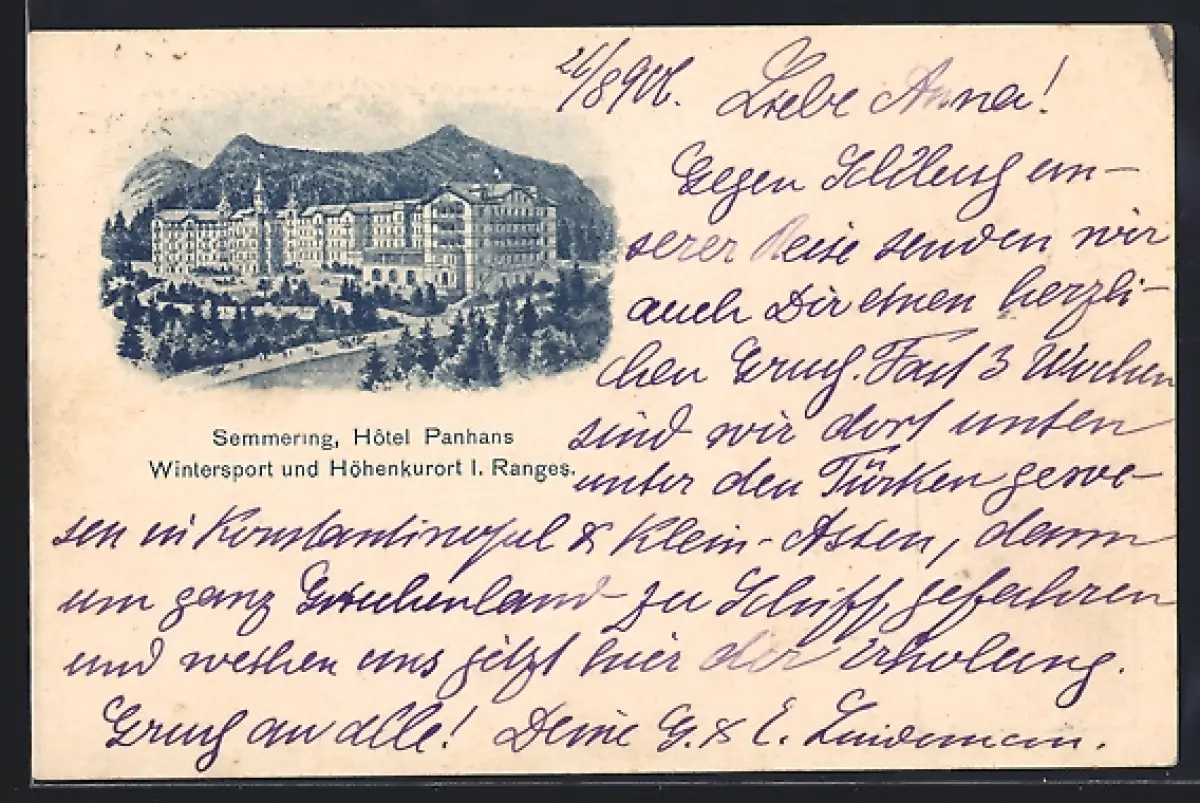 Liebe Anna!
Gegen Schluß un-
serer Reise senden wir
auch Dir einen herzli-
chen Gruß. Fast 3 Wochen
sind wir dort unten
unter den Türken gewe-
sen in Konstantinopel & Klein-Asien, dann
um ganz Griechenland zu Schiff gefahren
und weihen uns jetzt hier der Erholung.
Gruß an alle! Deine G. & E. Lindemann.
Semmering, Hôtel Panhans
Wintersport und Höhenkurort I. Ranges.